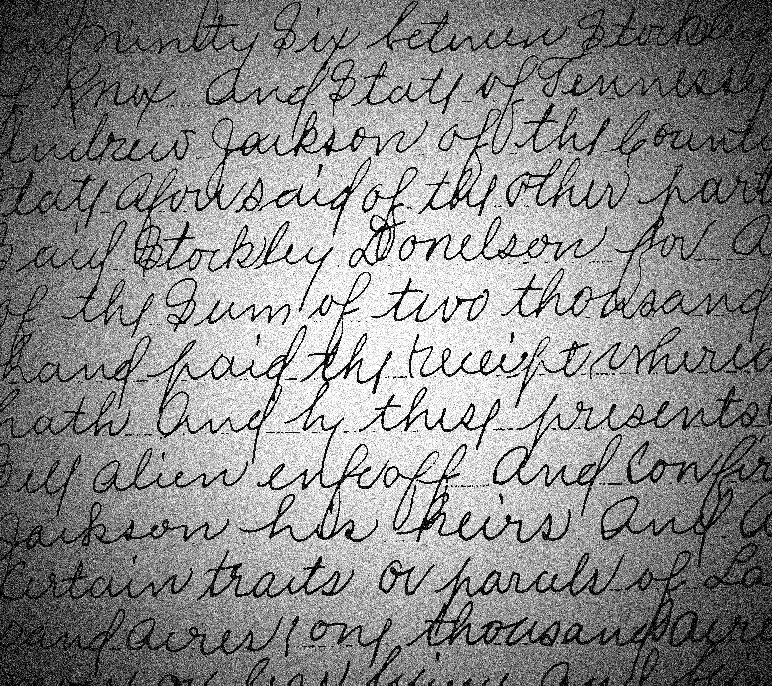 and ninty Six between Stockle
of Knox and State of Tennessy
Andrew Jackson of the Count
State aforesaid of the other part
Said Stockley Donelson for a
of the Sum of two thousand
hand paid the receipt where
hath and by these presents
Sell alien enfeoff and Confir
Jackson his heirs and a
Certain traits or parcels of La
sand acres one thousand acre